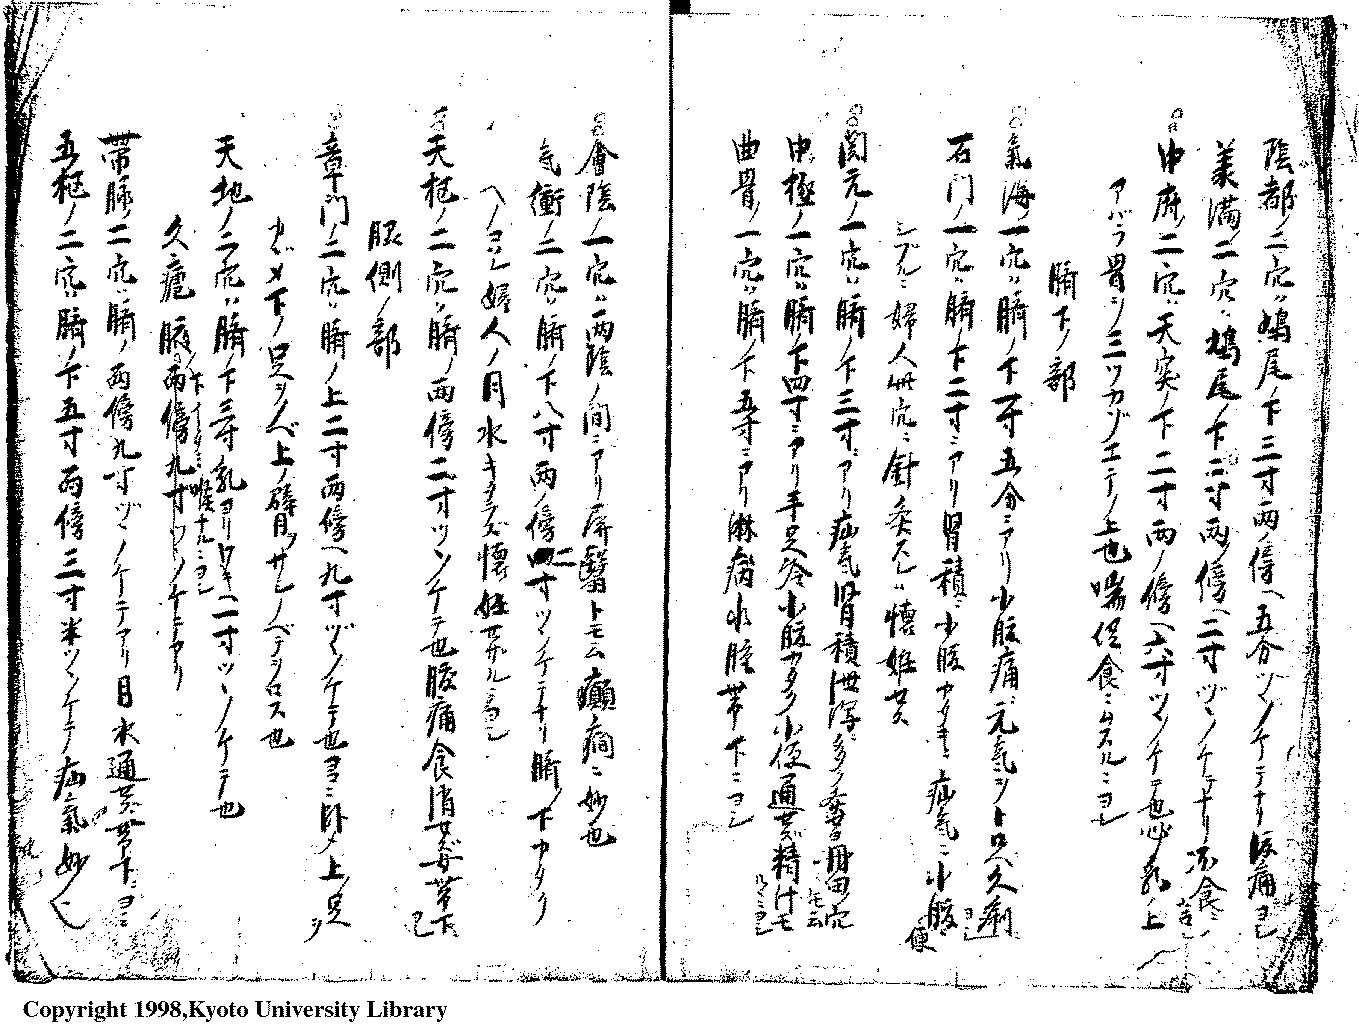 陰都ノ二穴ハ鳩尾ノ下三寸両ノ傍ヘ五分ヅヽノケテナリ腹痛ヨシ
美満ノ二穴ハ鳩尾ノ下二寸両ノ傍ヘ二寸ヅヽノケテナリ不食ニ
中府ノ二穴ハ天突ノ下二寸両ノ傍ヘ六寸ツヽノケテ也必乳ノ上
アバラ骨ヲ三ツカゾエテノ上也喘促食ニムスルニヨシ
臍下ノ部
氣海ノ一穴ハ臍ノ下一寸五分ニアリ小腹痛ニ元氣ヲトロヘ久痢ヨシ
石門ノ一穴ハ臍ノ下二寸ニアリ胃積ニ小腹カタキニ疝気ニ小腹
シブルニ婦人此穴ニ針灸スレハ懐妊せス
関元ノ一穴ハ臍ノ下三寸ニアリ疝氣腎積泄瀉ニ多ク毒ヨシ丹田穴トモ云
中極ノ一穴ハ臍ノ下四寸ニアリ手足冷小腹カタク小便通せズ精汁モルニヨシ
曲骨ノ一穴ハ臍ノ下五寸ニアリ淋病水腫帯下ニヨシ
會陰ノ一穴ハ両陰ノ間ニアリ屏翳トモ云癲癇ニ妙也
気衝ノ二穴ハ臍ノ下八寸両ノ傍二寸ツヽノケテナリ臍ノ下カタク
ヘノヨレ婦人ノ月水キタラズ懐妊せザルニヨシ
天枢ノ二穴ハ臍ノ両傍二寸ツヽノケテ也腹痛食消せズ女帯下ヨシ
腹側ノ部
章門ノ二穴ハ臍ノ上二寸両傍ヘ九寸ヅヽノケテ也ヨコニ臥メ上ノ足ヲ
カヾメ下ノ足ヲノベ上ノ臂ヲサシノベテヲロス也
天地ノ二穴ハ臍ノ下三寸乳ヨリワキヘ一寸ツヽノケテ也
久瘧腋ノ下イタミニ喉ナルニヨシ
両傍九寸ツヽノケテアリ
帯脉ノ二穴ハ臍ノ両傍九寸ヅヽノケテアリ月水通せズ帯下ニヨシ
五枢ノ二穴ハ臍ノ下五寸両傍三寸半ツヽノケテ疝氣妙
Copyright 1998,Kyoto University Library